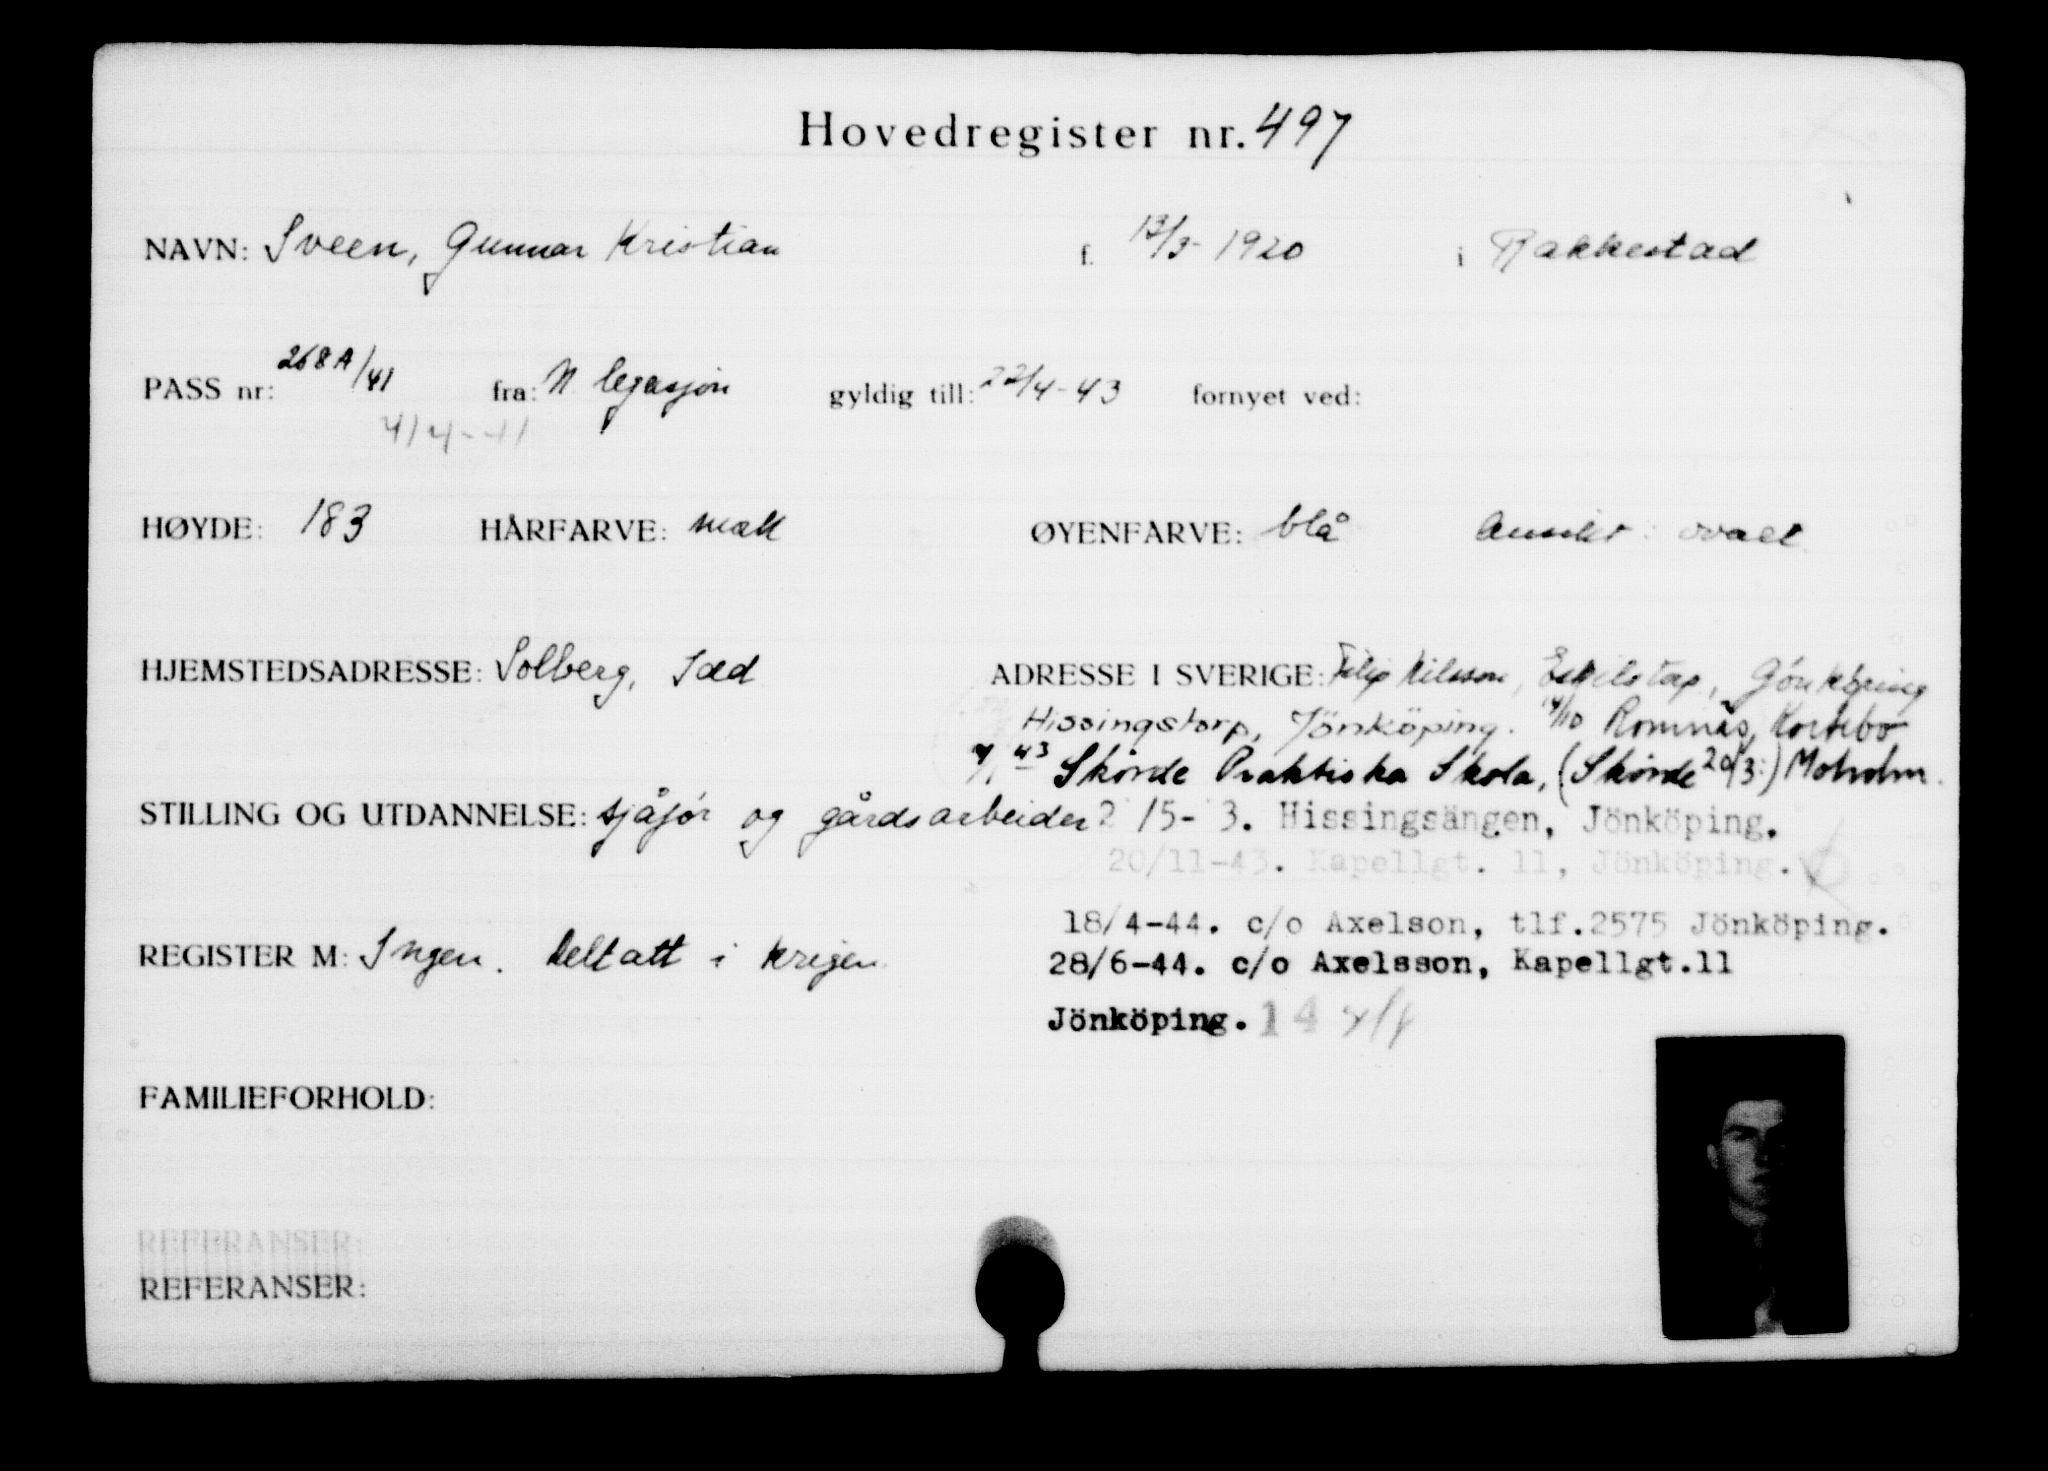 Hovedregister nr. 497
NAVN: Sveen, Gunnar Kristian f. 13/3-1920 i Rakkestad
PASS nr: 268A/41 fra: N legasjon gyldig till: 22/4-43 fornyet ved:
HØYDE: 183 HÅRFARVE: mørk ØYENFARVE: blå Ansikt: ovalt
HJEMSTEDSADRESSE: Solberg, Idd ADRESSE I SVERIGE: Filip Nilsson, Eskilstorp, Jönköping
Hissingstorp, Jönköping. 14/10 Romnäs, Kortebo
43 Skövde Praktiska Skola, (Skövde 20/3:) Moholm.
STILLING OG UTDANNELSE: sjåfør og gårdsarbeider 2 /5- 3. Hissingsängen, Jönköping.
20/11-43. Kapellgt. 11, Jönköping.
18/4-44. c/o Axelson, tlf.2575 Jönköping.
REGISTER M: Ingen. Deltatt i krigen 28/6-44. c/o Axelsson, Kapellgt.11
Jönköping. 14
FAMILIEFORHOLD:
REFERANSER:
REFERANSER: